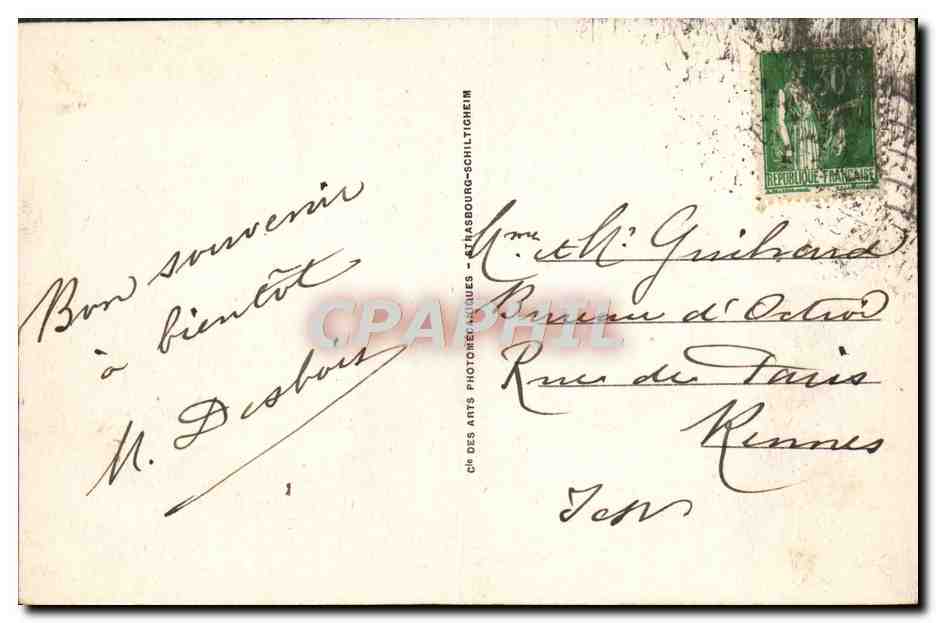 Bon souvenir
à bientôt
M. Desbois
Cie DES ARTS PHOTOMÉCANIQUES - STRASBOURG-SCHILTIGHEIM
30c
RÉPUBLIQUE-FRANÇAISE
Mme et Mr Guibrard
Bureau d'Octroi
Rue de Paris
Rennes
I et V
CPAPHIL